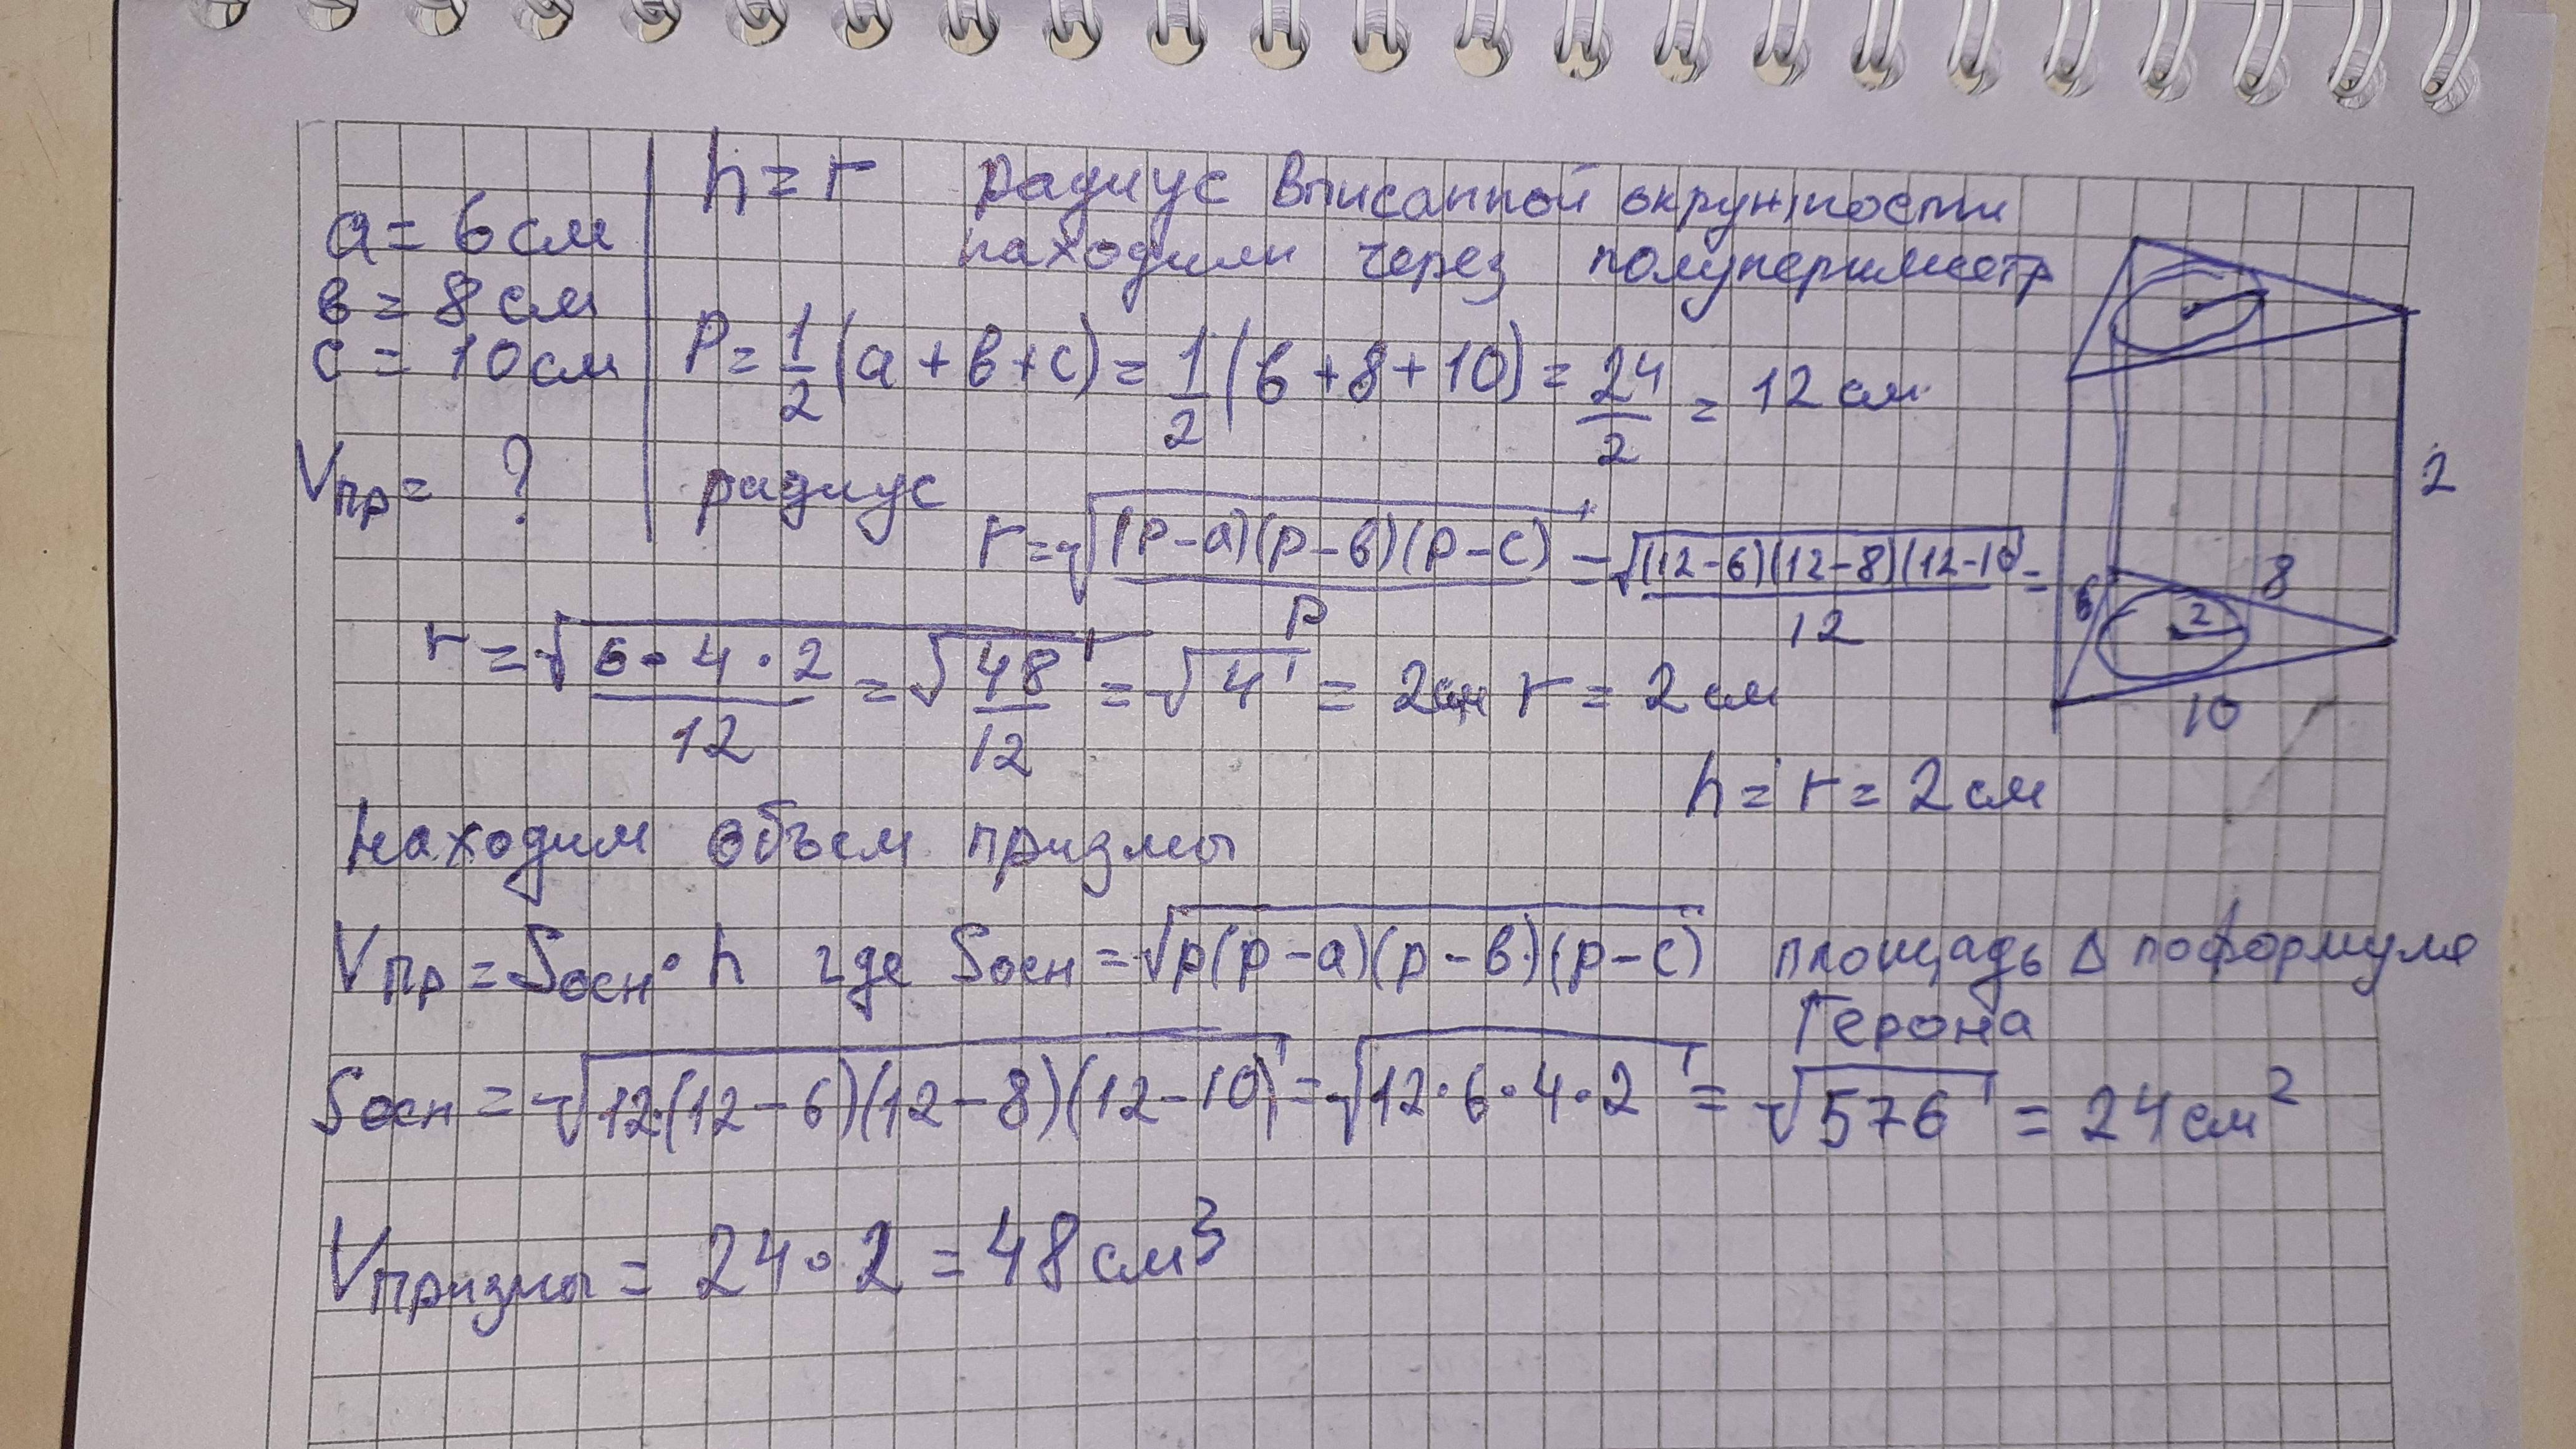 a = 6 см
в = 8 см
с = 10 см
Vпр = ?
h = r радиус вписанной окружности
находим через полупериметр
P = 1/2 (a + в + c) = 1/2 (6 + 8 + 10) = 24/2 = 12 см
радиус
r = √((p-a)(p-в)(p-c)/p) = √((12-6)(12-8)(12-10)/12) =
r = √(6·4·2/12) = √(48/12) = √4 = 2см r = 2 см
h = r = 2 см
2
6
8
2
10
Находим объем призмы
Vпр = Sосн · h где Sосн = √p(p-a)(p-в)(p-c) площадь Δ по формуле
Герона
Sосн = √12·(12-6)(12-8)(12-10) = √12·6·4·2 = √576 = 24 см²
Vпризмы = 24·2 = 48 см³